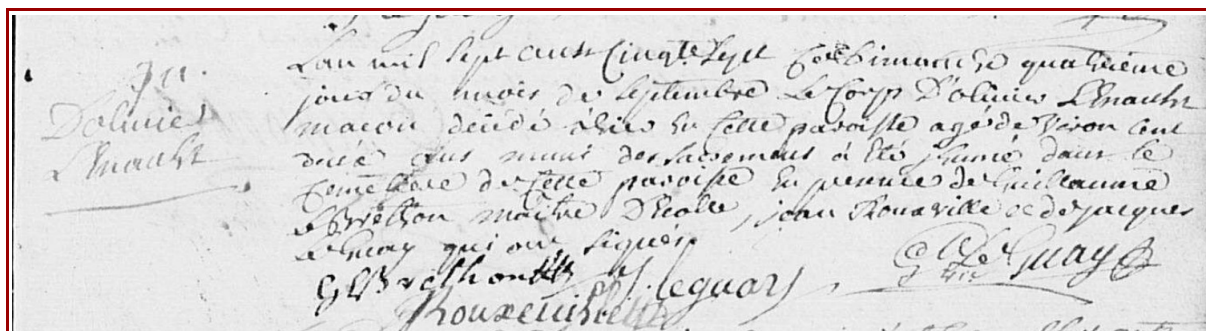 D'olivier
L'an mil sept cent Cinqte sept Ce dimanche quatrieme
jour du mois de septembre Le Corp D'olivier
macon décédé hier En Cette paroisse agé de viron cent
ans muni des sacremens à été jhumé dans le
Cemetiere de Cette paroisse En presence de Guillaume
le Brethon maitre D'Ecolle, jean Rouxeville et de jacques
le Guay qui ont signés
G LeBrethon J. leguay Le Guay
Rouxeville